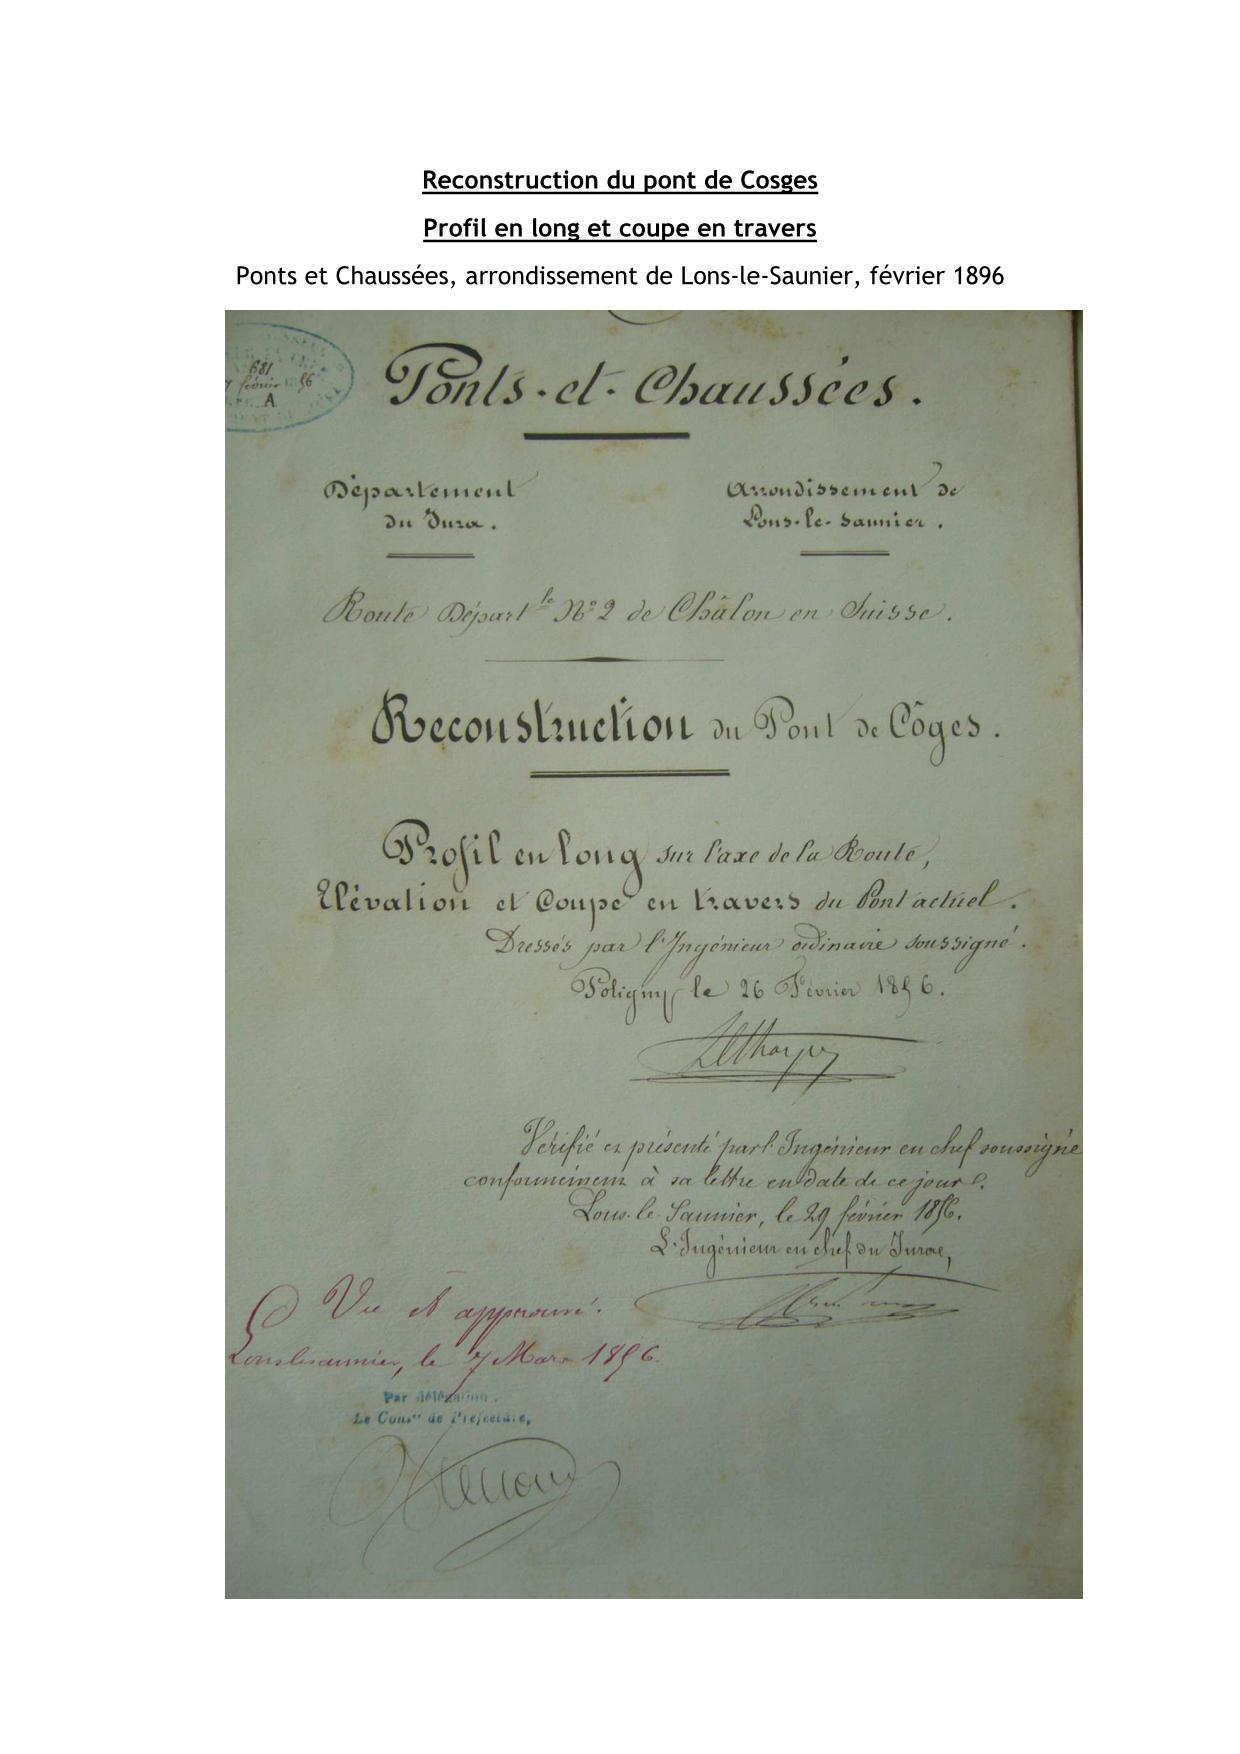 Reconstruction du pont de Cosges
Profil en long et coupe en travers
Ponts et Chaussées, arrondissement de Lons-le-Saunier, février 1896
681
7 février 1856
A
Ponts-et-Chaussées.
Département
du Jura.
Arrondissement de
Lons-le-Saunier.
Route Départ.le No 2 de Châlon en Suisse.
Reconstruction du Pont de Côges.
Profil en long sur l'axe de la Route,
Elévation et Coupe en travers du Pont actuel.
Dressés par l'Ingénieur ordinaire soussigné.
Poligny le 26 Février 1856.
Vérifié et présenté par l'Ingénieur en chef soussigné
conformément à sa lettre en date de ce jour.
Lons-le-Saunier, le 29 février 1856.
L'Ingénieur en chef du Jura,
Vu et approuvé.
Lons le saunier, le 7 Mars 1856.
Par délégation.
Le Cons.er de Préfecture,